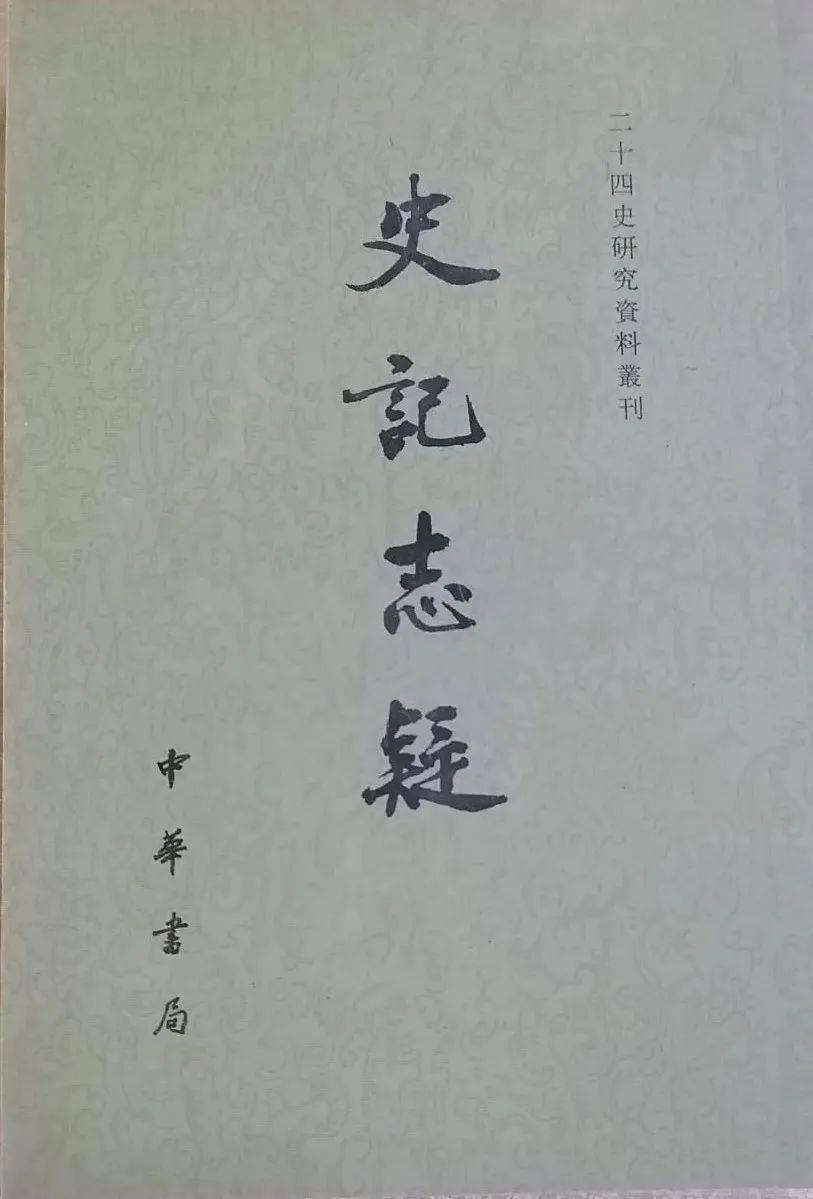 二十四史研究資料叢刊
史記志疑
中華書局